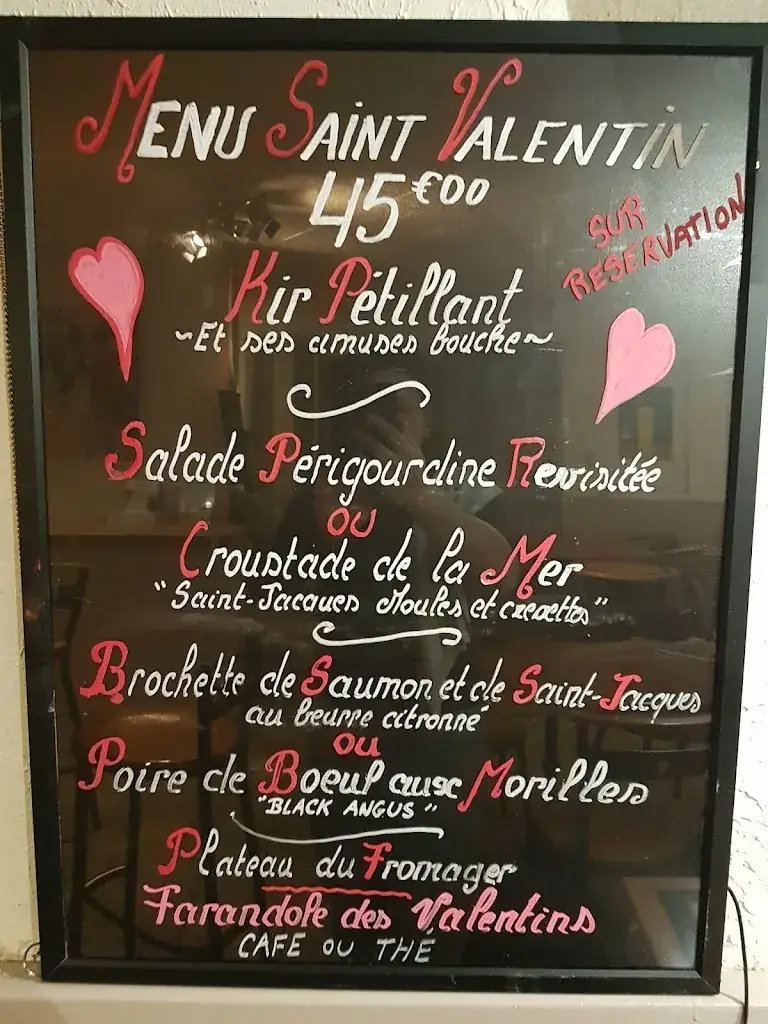 MENU SAINT VALENTIN
45€00
SUR
RESERVATION
Kir Pétillant
~Et ses amuses bouche~
Salade Périgourdine Revisitée
OU
Croustade de la Mer
"Saint-Jacques Moules et crevettes"
Brochette de Saumon et de Saint-Jacques
au beurre citronné
OU
Poire de Boeuf aux Morilles
"BLACK ANGUS"
Plateau du Fromager
Farandole des Valentins
CAFE OU THE